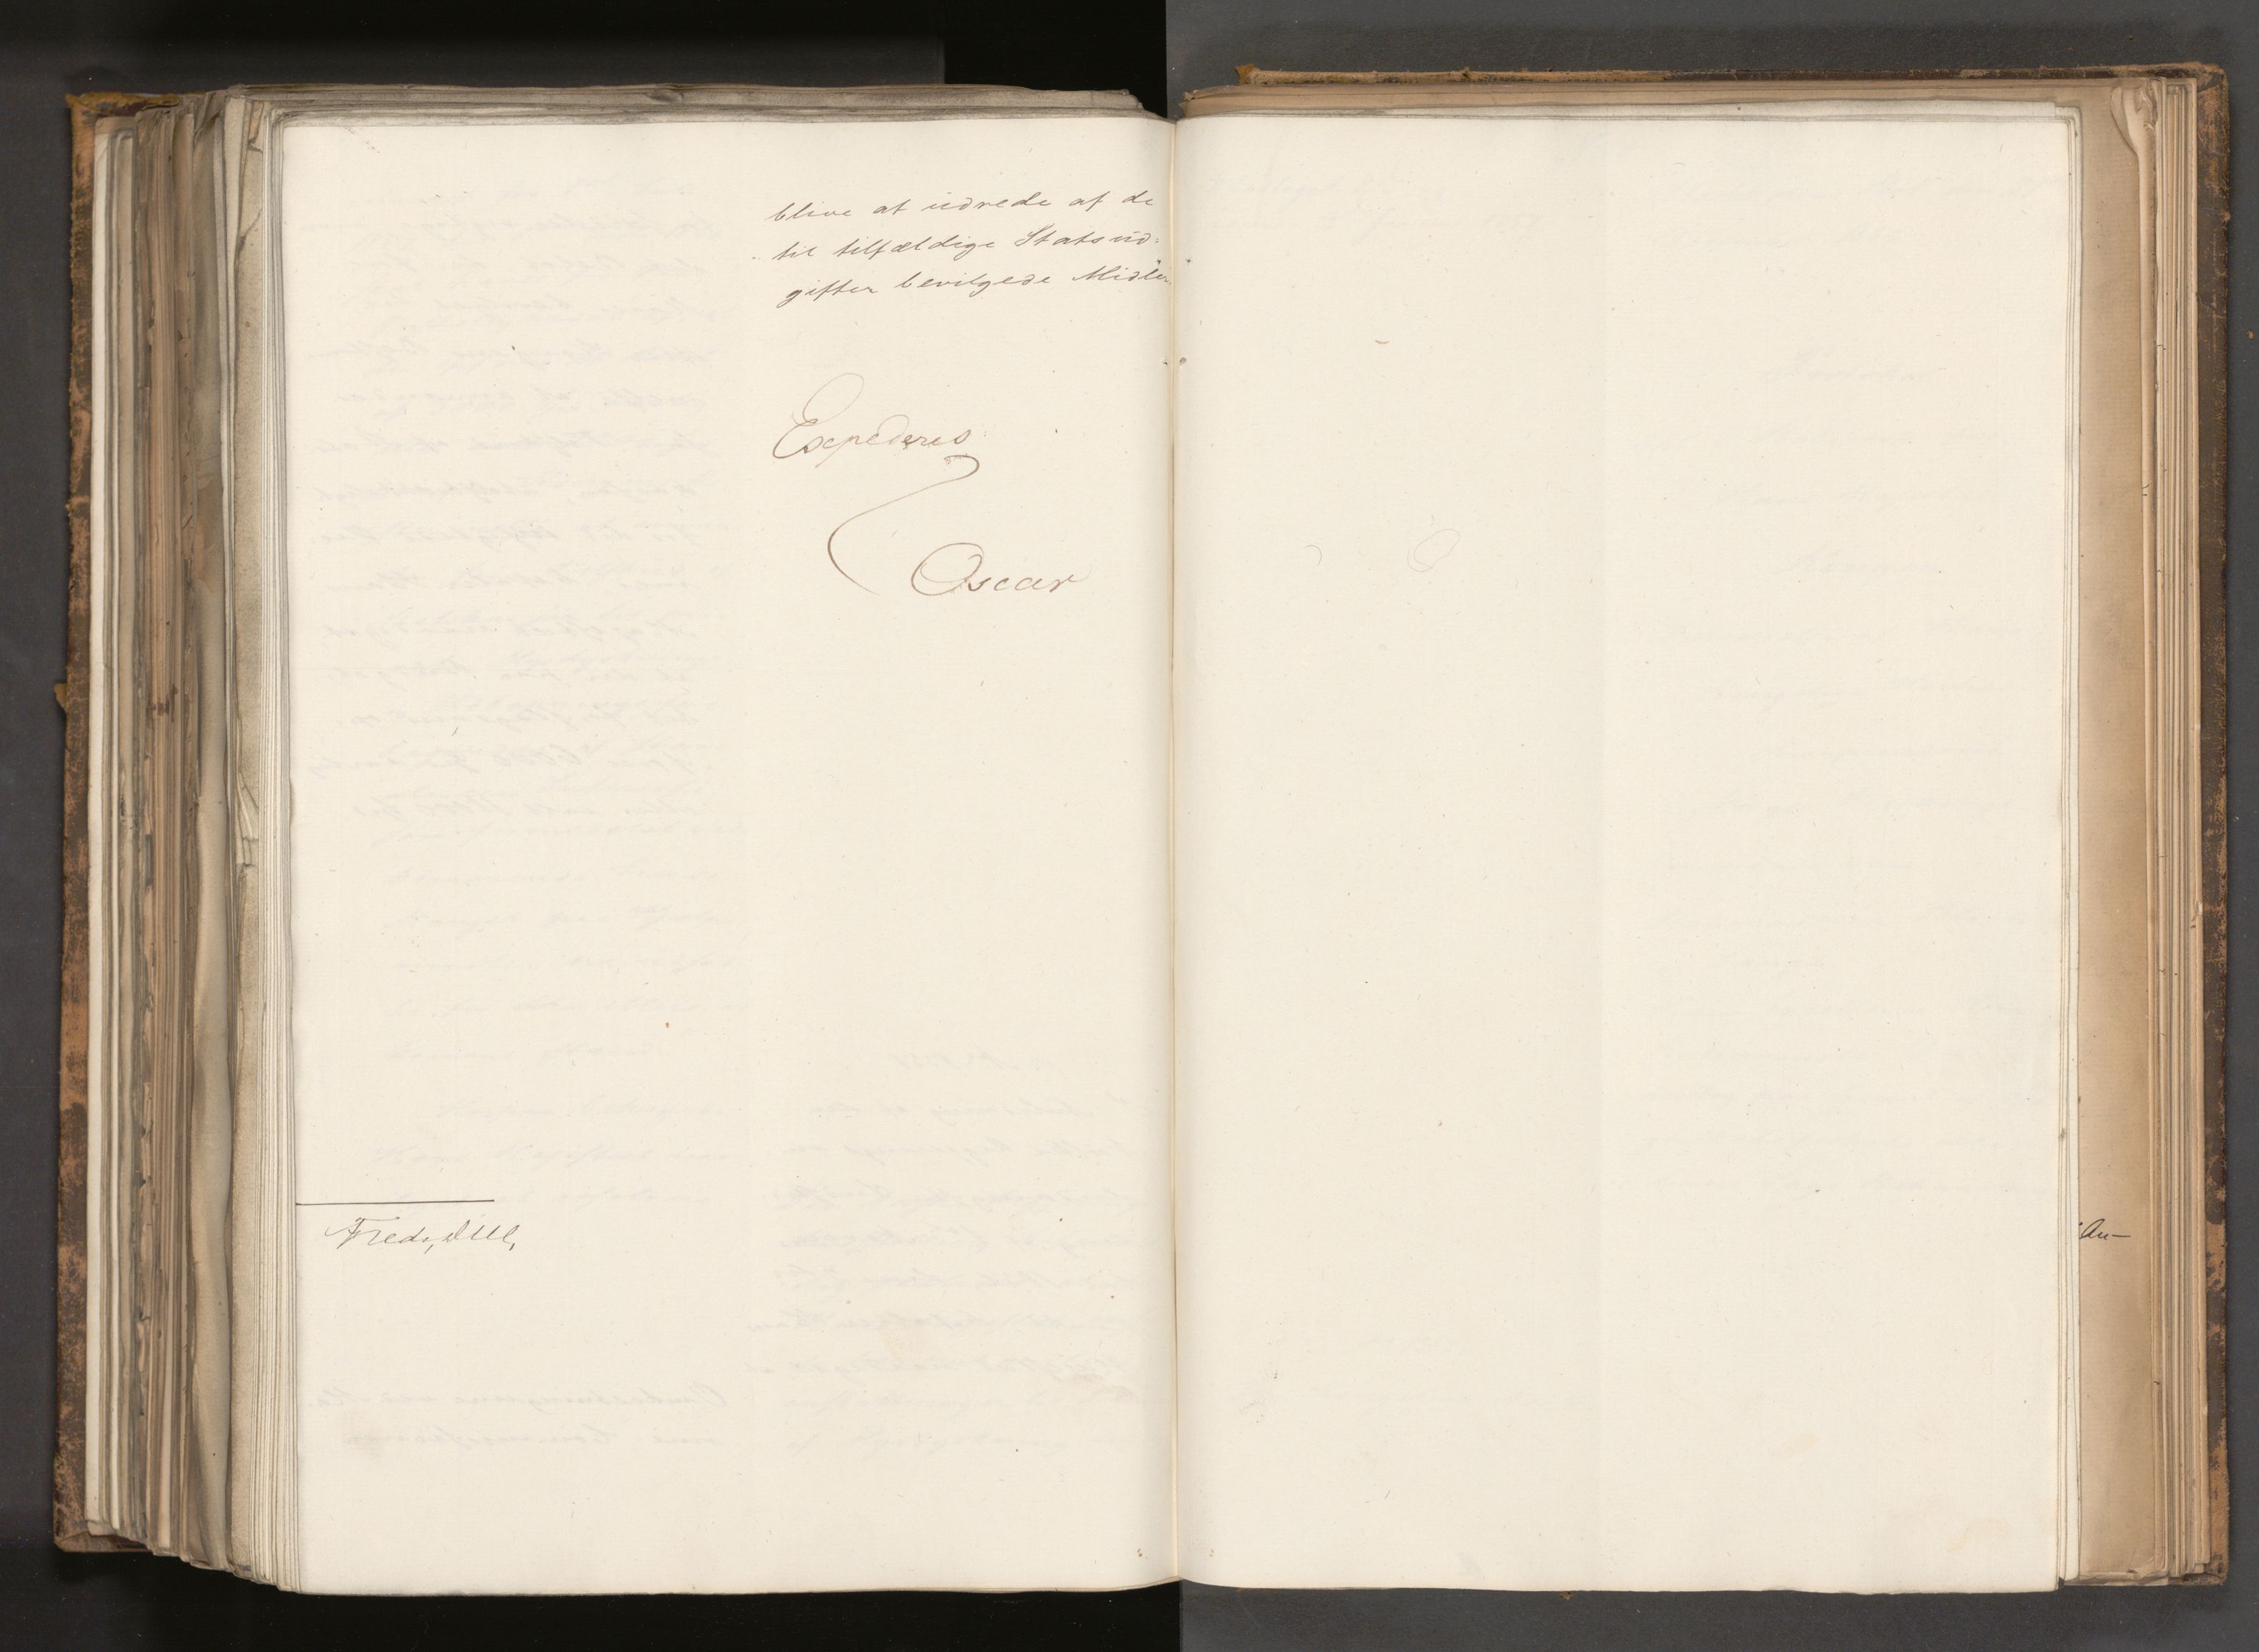 blive at udrede af de
til tilfældige Statsud-
gifter bevilgede Midler.
Expederes
Oscar
Fred,